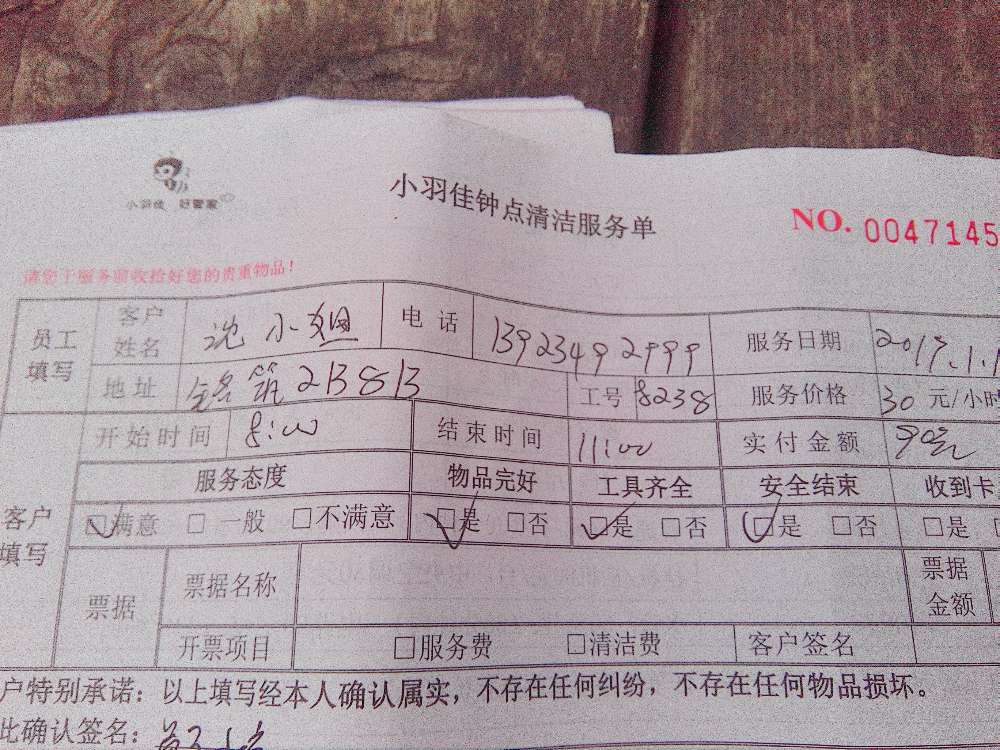 小羽佳 好管家
小羽佳钟点清洁服务单
NO. 0047145
请您于服务前收拾好您的贵重物品!
员工填写 客户姓名 沈小姐 电话 13923492999 服务日期 2017.1.1
地址 筑21B8B 工号 8238 服务价格 30 元/小时
开始时间 8:00 结束时间 11:00 实付金额 90元
客户填写 服务态度 物品完好 工具齐全 安全结束 收到卡
☑满意 □一般 □不满意 ☑是 □否 ☑是 □否 ☑是 □否 □是
票据 票据名称 票据金额
开票项目 □服务费 □清洁费 客户签名
户特别承诺：以上填写经本人确认属实，不存在任何纠纷，不存在任何物品损坏。
此确认签名：